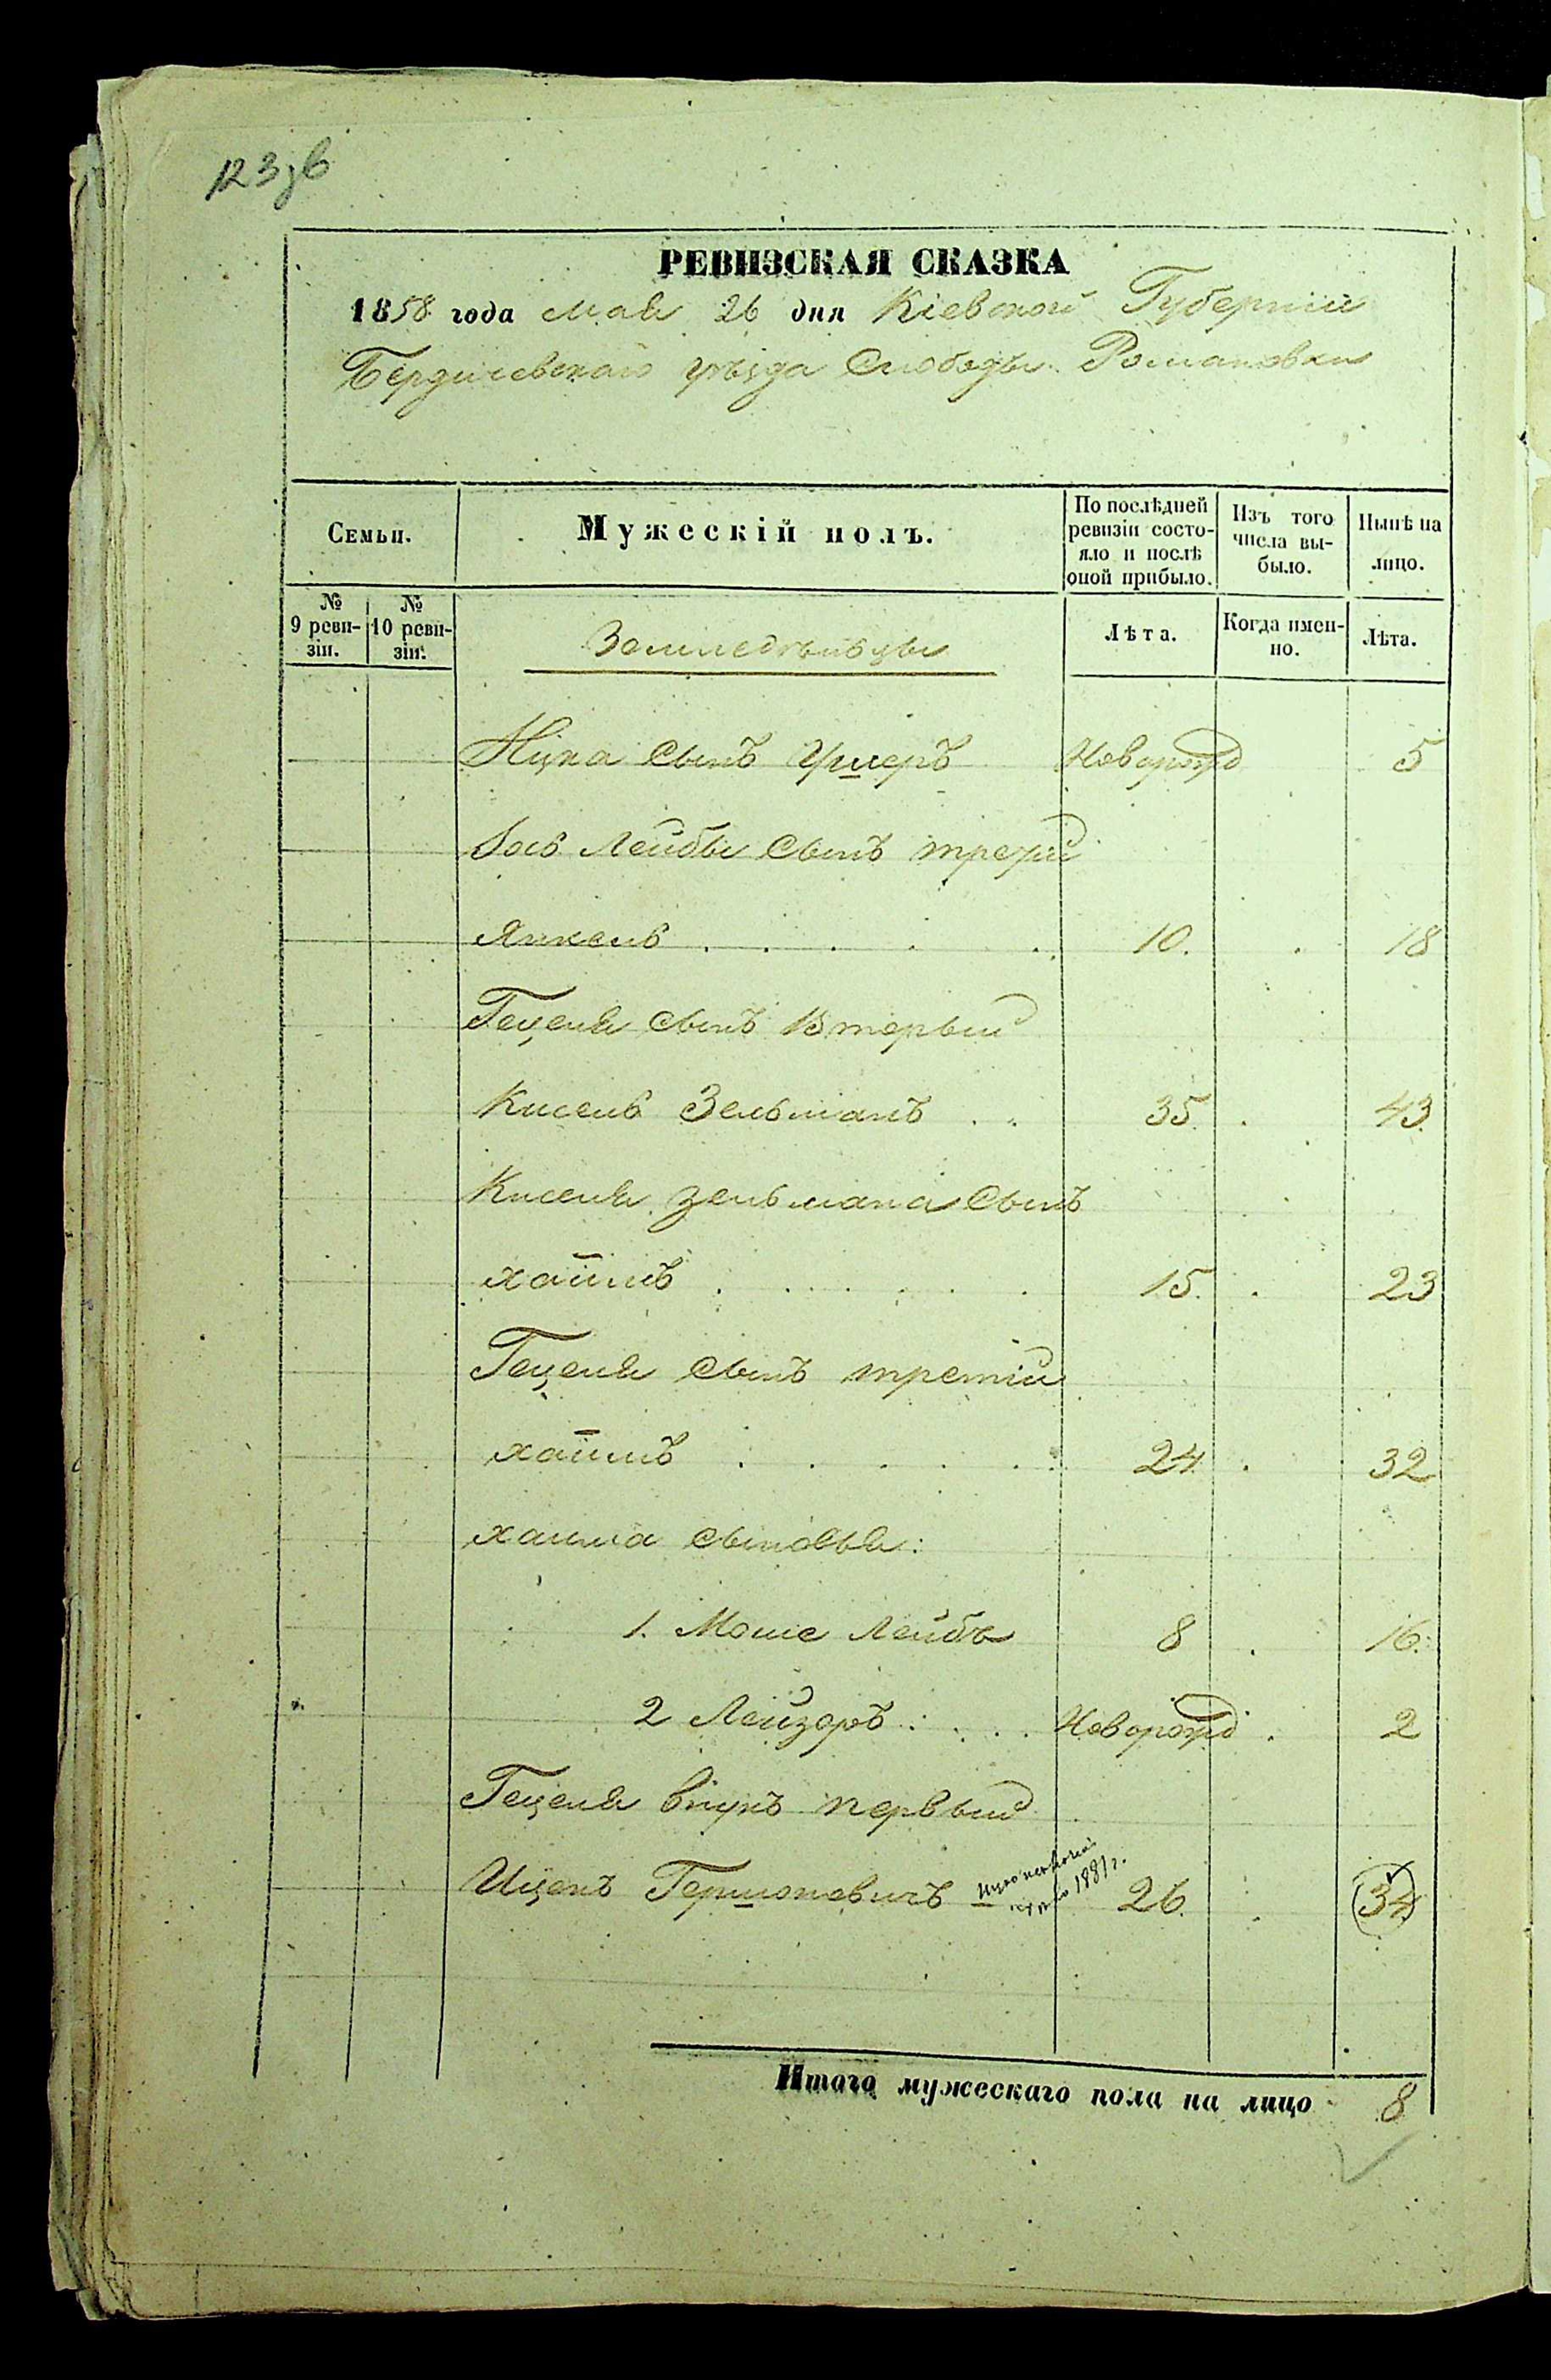 123зв
РЕВИЗСКАЯ СКАЗКА
1858 года мая 26 дня Кіевской Губерніи
Бердичевскаго уѣзда Слободы Романовки
Семьи.
Мужескій полъ.
По послѣдней ревизіи состояло и послѣ оной прибыло.
Изъ того числа выбыло.
Нынѣ на лицо.
№ 9 ревизіи.
№ 10 ревизіи.
Земледѣльцы
Лѣта.
Когда именно.
Лѣта.
Ицка сынъ Ушеръ Новорожд 5
Лейбы сынъ третій
Янкель 10. 18
Гецеля сынъ Вторый
Кисель Зельманъ 35. 43
Киселя Зельмана сынъ
Хаимъ 15. 23
Гецеля сынъ третій
Хаимъ 24 32
Хаима сыновья:
1. Моше Лейба 8 16.
2 Лейзоръ Новорожд 2
Гецеля внукъ первый
Ицекъ Гершоновичъ 1881 г. 26. 34
Итого мужескаго пола на лицо 8